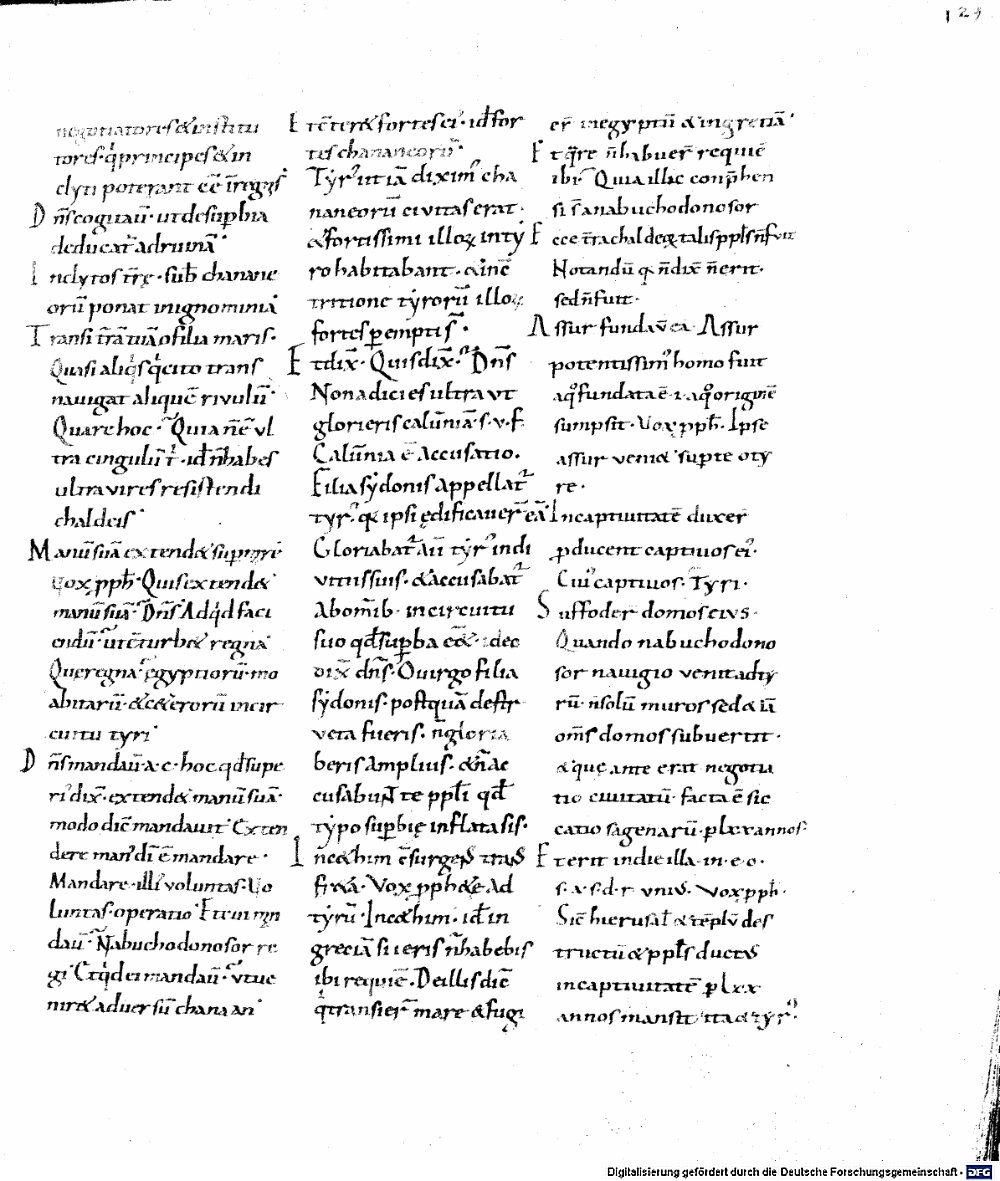 124
negotiatores & institu
tores · q̇ principes & in
clyti poterant ēē ī regⁱˢ
Dn̄s cogitauī · ut de suꝑbia
deducat̄ ad ruinā ·
Inclytos t̄rę · sub̄ chanane
orū ponat in ignominiā
Transi t̄rā tuā o filia maris ·
Quasi aliq̇s q̇ cito trans
nauigat aliquē riuulū ·
Quare hoc · Quia n̄ ē ul
tra cingulū t̄ · id n̄ habes
ultra uires resistendi
chaldeis ·
Manū suā extend& suꝑ mare
Vox pph̄ · Quis extend&
manū suā · Dn̄s · Ad qd faci
endū · ut ēturb& regna
Que regna · ęgyptiorū · mo
abitarū · & c&erorū in cir
cuitu tyri ·
Dn̄s mandauī · a · c · hoc qđ supe
ri dix̄ · extend& manū suā ·
modo dic̄ mandauit · Exten
dere man' dī ē mandare ·
Mandare · illi' uoluntas · Vo
luntas · operatio · Et tm̄ man
dauī · Nabuchodonosor re
gi · Et qd ei mandauī · ut ue
nir& aduersū chanaan ·
Et ēter& fortes ei' · id for
tes chananeorū ·
Tyr' ut iā dixim' cha
naneorū ciuitas erat ·
& fortissimi illoꝝ in ty
ro habitabant · & in ē
tritione tyrorū illoꝝ
fortes ꝑempti s̄ ·
Et dix̄ · Quis dix̄ · Dn̄s
Non adicies ultra ut
glorieris calūniā · s · v · f ·
Calūnia ē accusatio ·
Filia sydonis appellat̄
tyr' · q̇ ipsi ędificauer̄ eā
Gloriabat̄ aū tyr' in di
uitiis suis · & accusabat̄
abomīb · in circuitu
suo qđ suꝑba ē& · ideo
dix̄ dn̄s · O uirgo filia
sydonis · postquā destr
ucta fueris · n̄ gloria
beris amplius · & n̄ ac
cusabunt te ppl̄i qđ
typo suꝑbię inflata sis ·
In c&him ēsurgens trans
fr&a · Vox pph& ad
tyrū · In c&him · id in
greciā si ieris n̄ habebis
ibi requiē · De illis dic̄
q̇ transier̄ mare & fugi
er̄ in egyptū & in gretiā ·
Et q̇re n̄ habuer̄ requiē
ibi · Quia illac conp̄hen
si s̄ a nabuchodonosor
Ecce t̄ra chaldeoꝝ talis ppl̄s n̄ fuit
Notandū q̇ n̄ dix̄ n̄ erit ·
sed n̄ fuit ·
Assur fundauī eā · Assur
potentissim' homo fuit
a q̊ fundata ē · ł · a q̊ originē
sumpsit · Vox pph̄ · Ipse
assur ueni& suꝑ te o ty
re ·
In captiuitatē duxer̄
ꝑducent captiuos ei' ·
Cui' captiuos · Tyri ·
Suffoder̄ domos eius ·
Quando nabuchodono
sor nauigio uenit ad ty
rū · n̄ solū muros sed & iā
om̄s domos subuertit ·
& que ante erat negotia
tio ciuitatū · facta ē sic
catio sagenarū · ꝑ lxx annos ·
Et erit in die illa · in · e · o ·
s · a · s · d · r · unius · Vox pph ·
Sic̄ hierusal̄ & tēplū des
tructū & ppl̄s ductus
in captiuitatē ꝑ lxx
annos mansit · ita & tyr' ·
Digitalisierung gefördert durch die Deutsche Forschungsgemeinschaft - DFG